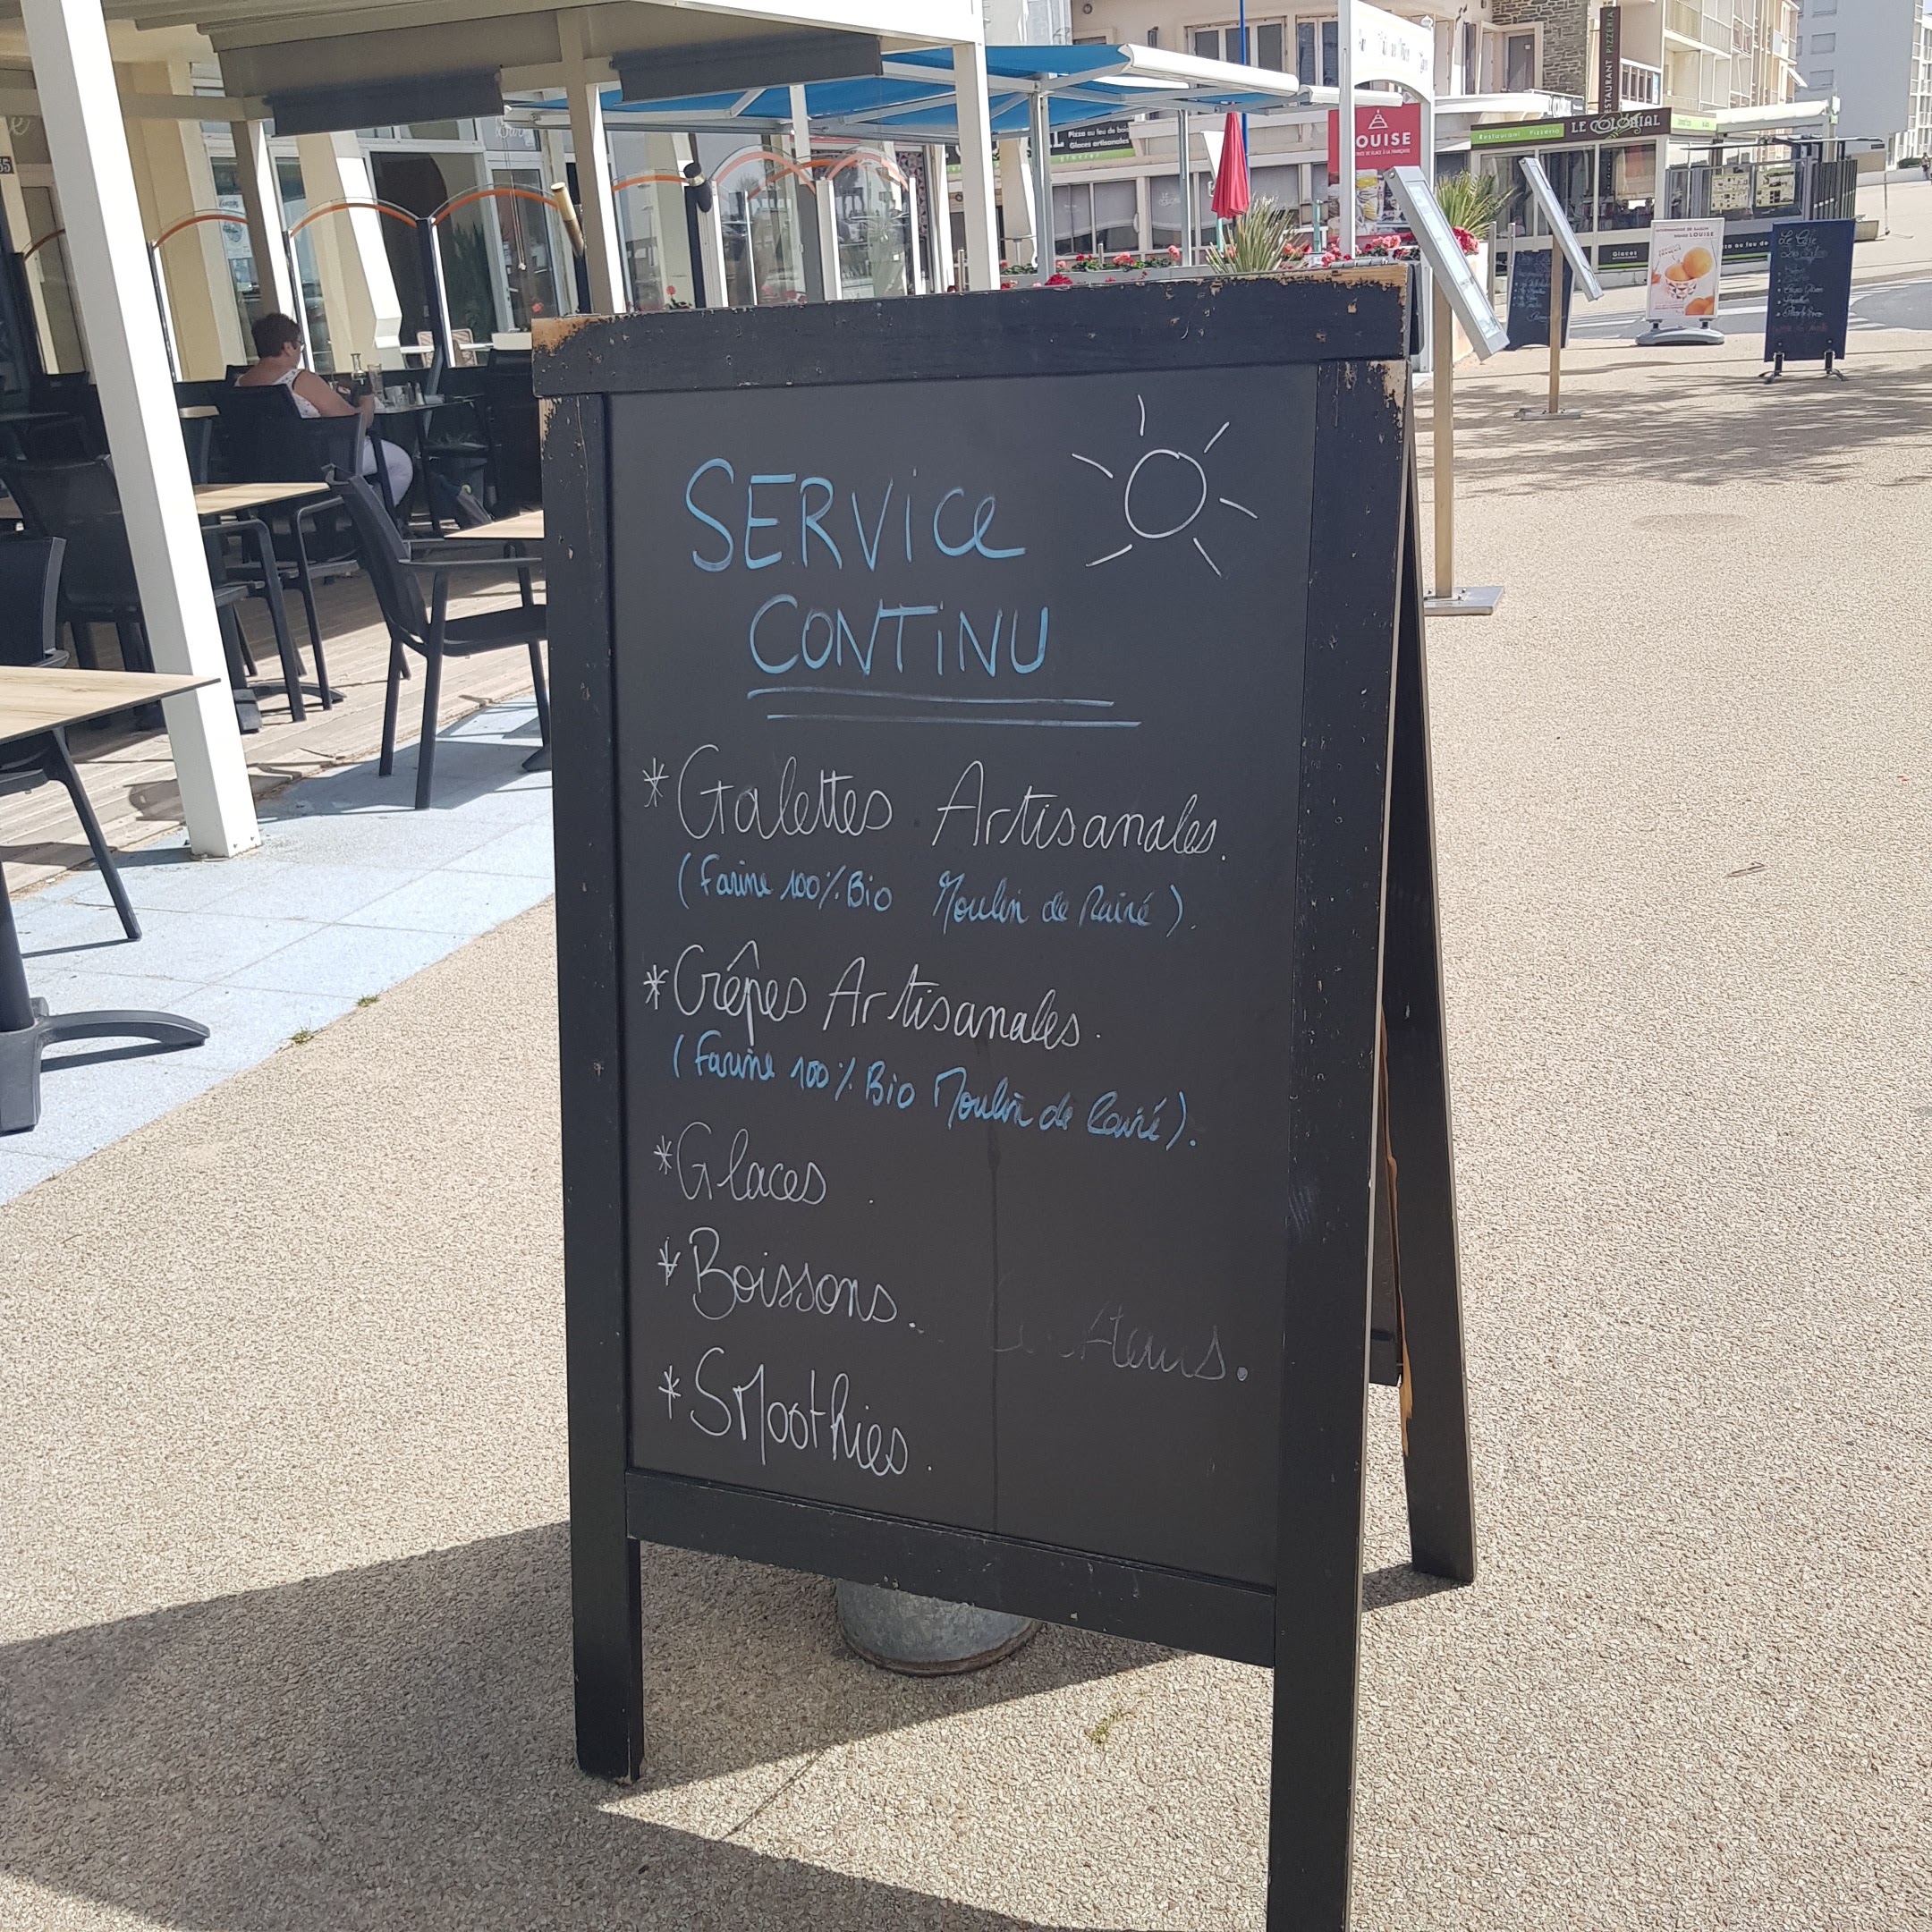 SERVICE
CONTINU
* Galettes Artisanales.
(Farine 100% Bio Moulin de Rairé).
* Crêpes Artisanales.
(Farine 100% Bio Moulin de Rairé).
* Glaces.
* Boissons.
* Smoothies.
Pizza au feu de bois
Glaces artisanales
glacier
OUISE
Restaurant Pizzeria LE COLONIAL
RESTAURANT PIZZERIA
LOUISE
Glaces
Le Café